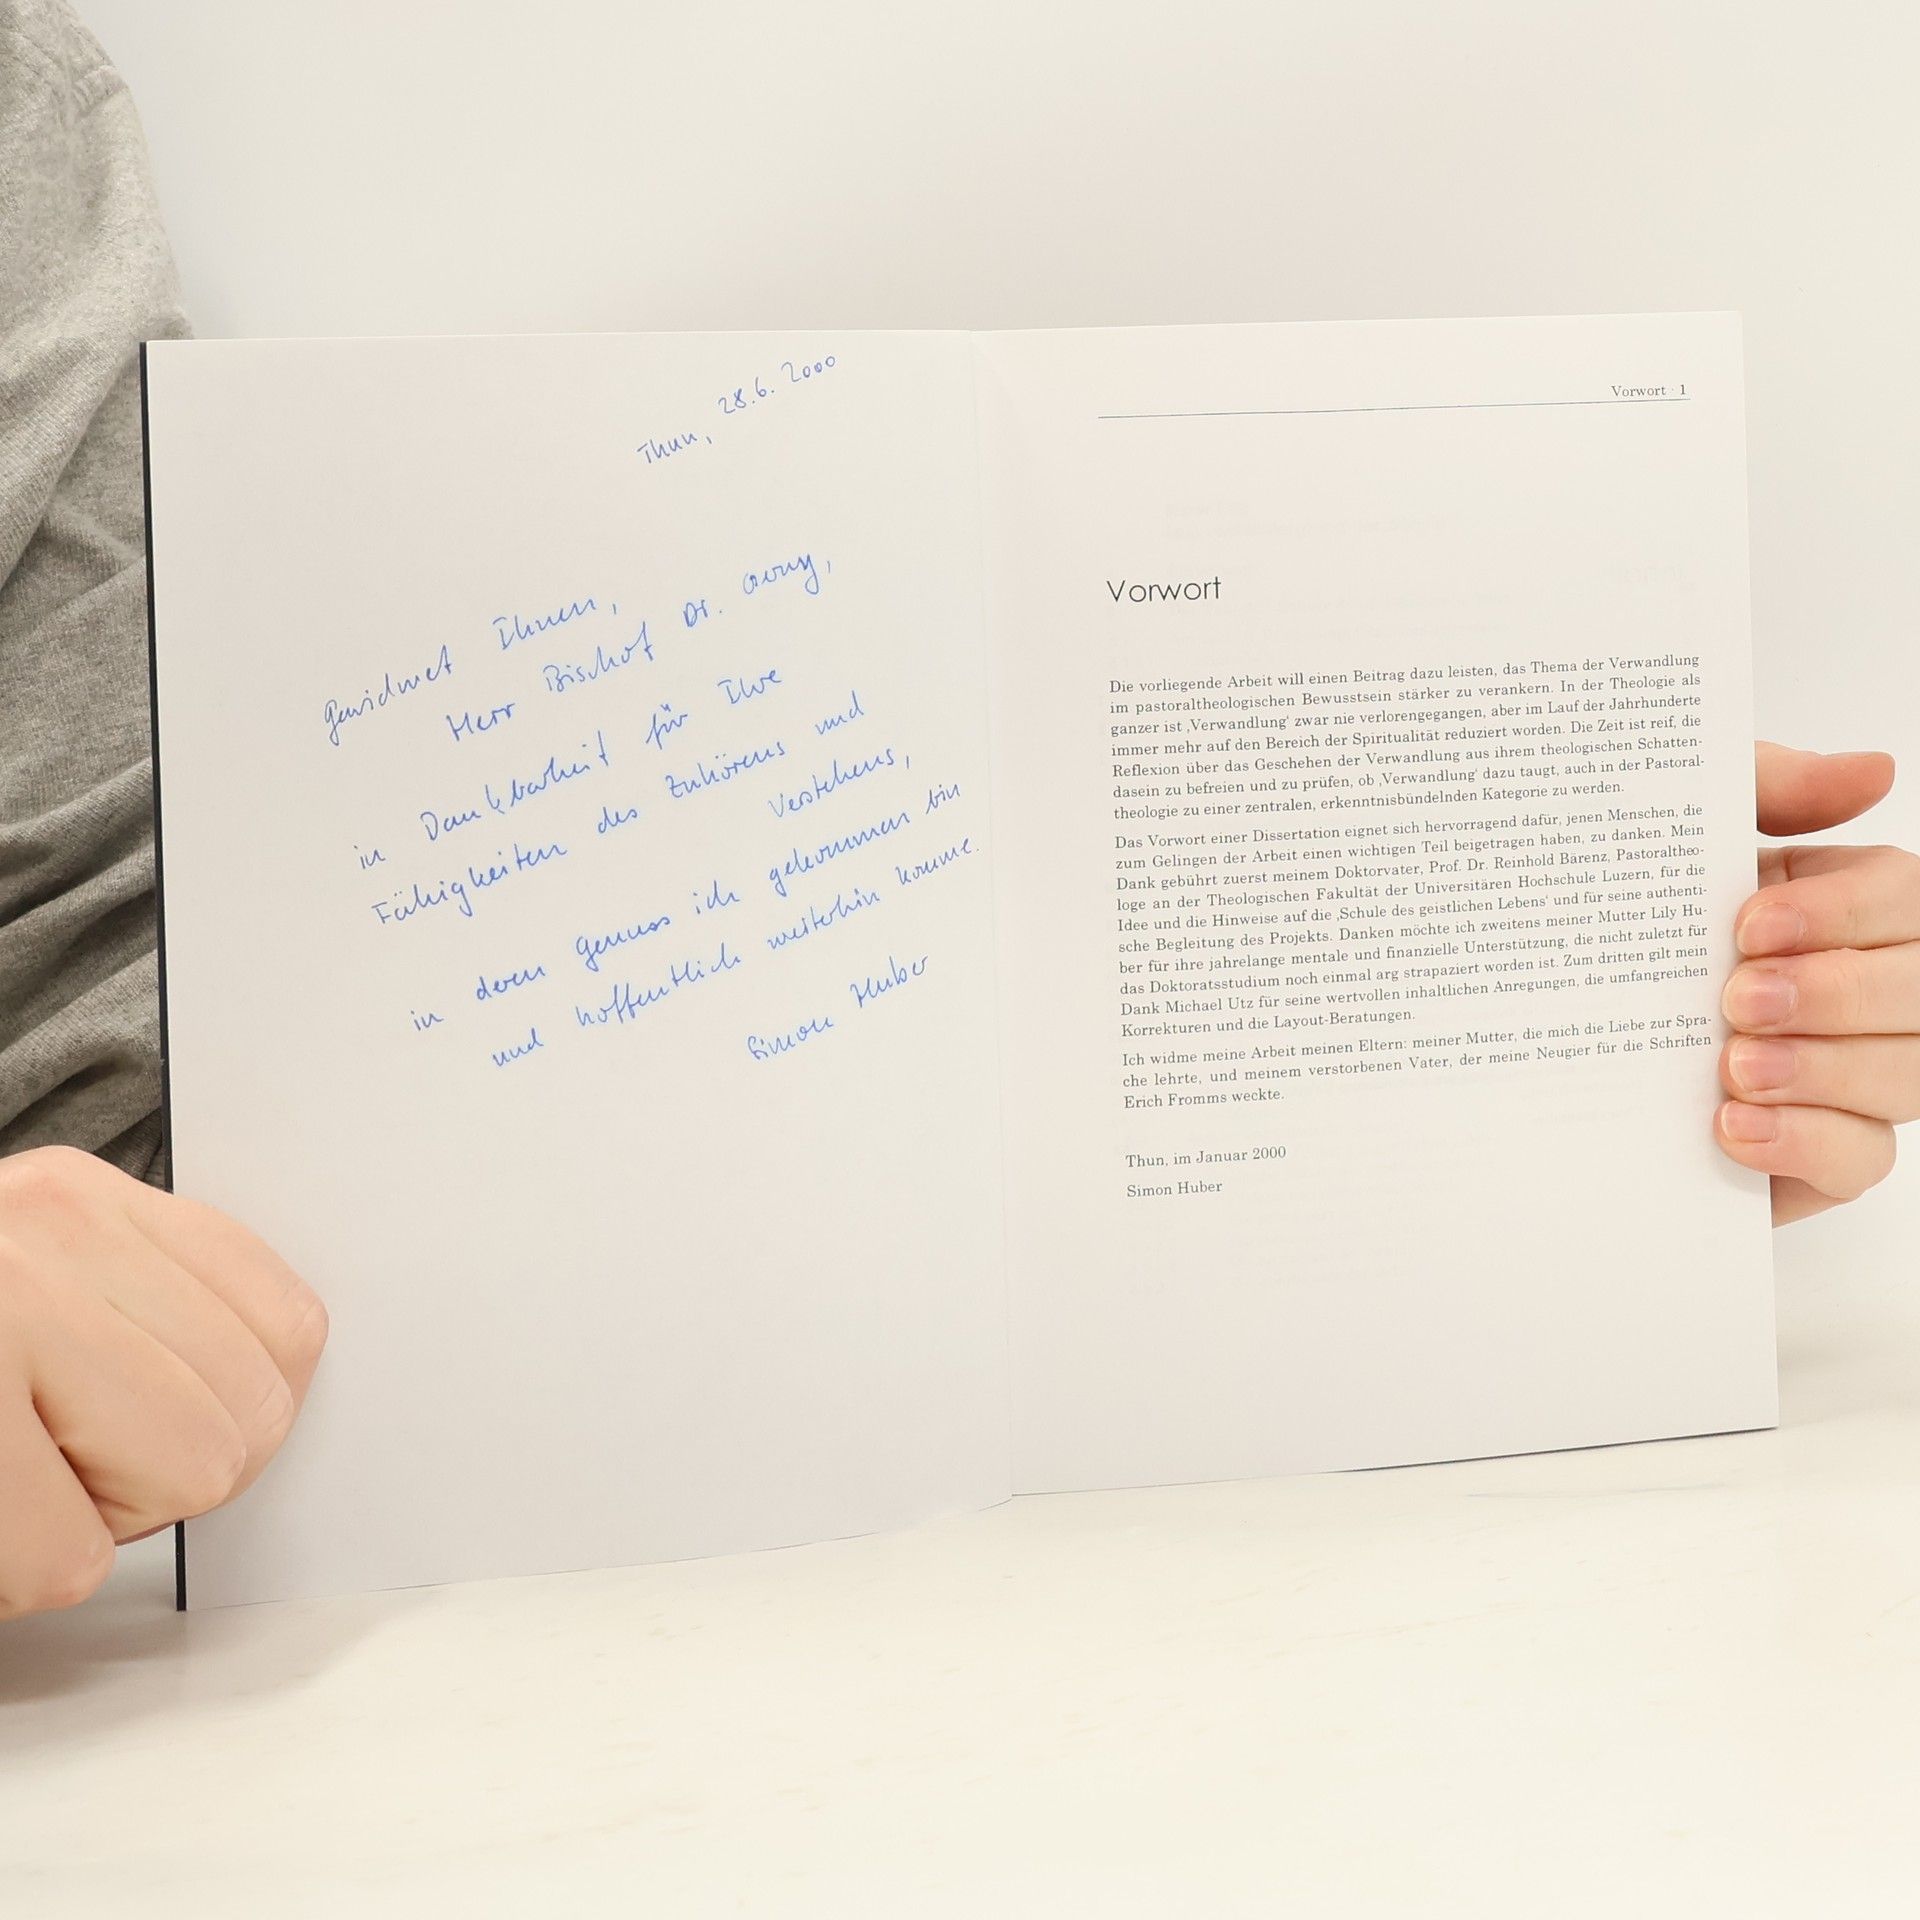 Thun, 28.6. 2000
Gewidmet Ihnen,
Herr Bischof Dr.
in Dankbarkeit für Ihre
Fähigkeiten des Zuhörens und
Verstehens,
in deren Genuss ich gekommen bin
und hoffentlich weiterhin komme.
Simon Huber
Vorwort · 1
Vorwort
Die vorliegende Arbeit will einen Beitrag dazu leisten, das Thema der Verwandlung
im pastoraltheologischen Bewusstsein stärker zu verankern. In der Theologie als
ganzer ist ‚Verwandlung‘ zwar nie verlorengegangen, aber im Lauf der Jahrhunderte
immer mehr auf den Bereich der Spiritualität reduziert worden. Die Zeit ist reif, die
Reflexion über das Geschehen der Verwandlung aus ihrem theologischen Schatten-
dasein zu befreien und zu prüfen, ob ‚Verwandlung‘ dazu taugt, auch in der Pastoral-
theologie zu einer zentralen, erkenntnisbündelnden Kategorie zu werden.
Das Vorwort einer Dissertation eignet sich hervorragend dafür, jenen Menschen, die
zum Gelingen der Arbeit einen wichtigen Teil beigetragen haben, zu danken. Mein
Dank gebührt zuerst meinem Doktorvater, Prof. Dr. Reinhold Bärenz, Pastoraltheo-
loge an der Theologischen Fakultät der Universitären Hochschule Luzern, für die
Idee und die Hinweise auf die ‚Schule des geistlichen Lebens‘ und für seine authenti-
sche Begleitung des Projekts. Danken möchte ich zweitens meiner Mutter Lily Hu-
ber für ihre jahrelange mentale und finanzielle Unterstützung, die nicht zuletzt für
das Doktoratsstudium noch einmal arg strapaziert worden ist. Zum dritten gilt mein
Dank Michael Utz für seine wertvollen inhaltlichen Anregungen, die umfangreichen
Korrekturen und die Layout-Beratungen.
Ich widme meine Arbeit meinen Eltern: meiner Mutter, die mich die Liebe zur Spra-
che lehrte, und meinem verstorbenen Vater, der meine Neugier für die Schriften
Erich Fromms weckte.
Thun, im Januar 2000
Simon Huber